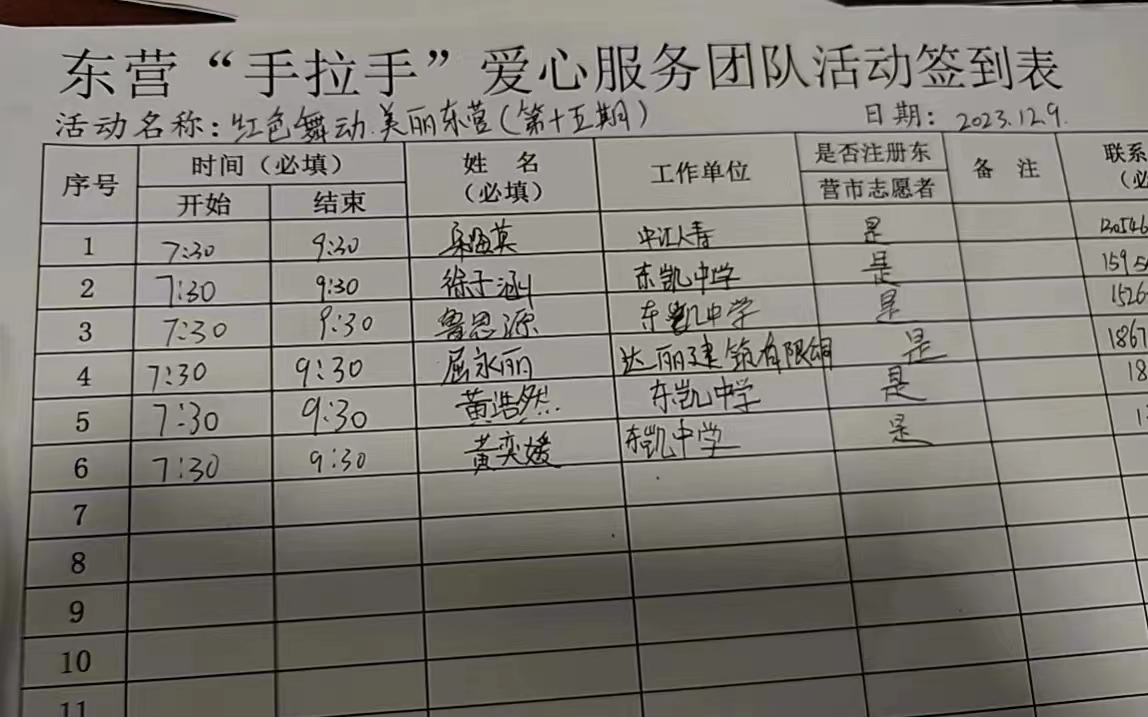 东营“手拉手”爱心服务团队活动签到表
活动名称：红色舞动 美丽东营（第十五期） 日期：2023.12.9.
序号 时间（必填） 姓 名 工作单位 是否注册东 备 注 联系
开始 结束 （必填） 营市志愿者 （必
1 7:30 9:30 是 130546
2 7:30 9:30 徐子涵 东凯中学 是 1595
3 7:30 9:30 鲁思源 东凯中学 是 1526
4 7:30 9:30 屈永丽 达丽建筑有限 是 1867
5 7:30 9:30 黄浩然 东凯中学 是 18
6 7:30 9:30 黄奕媛 东凯中学 是 1
7
8
9
10
11